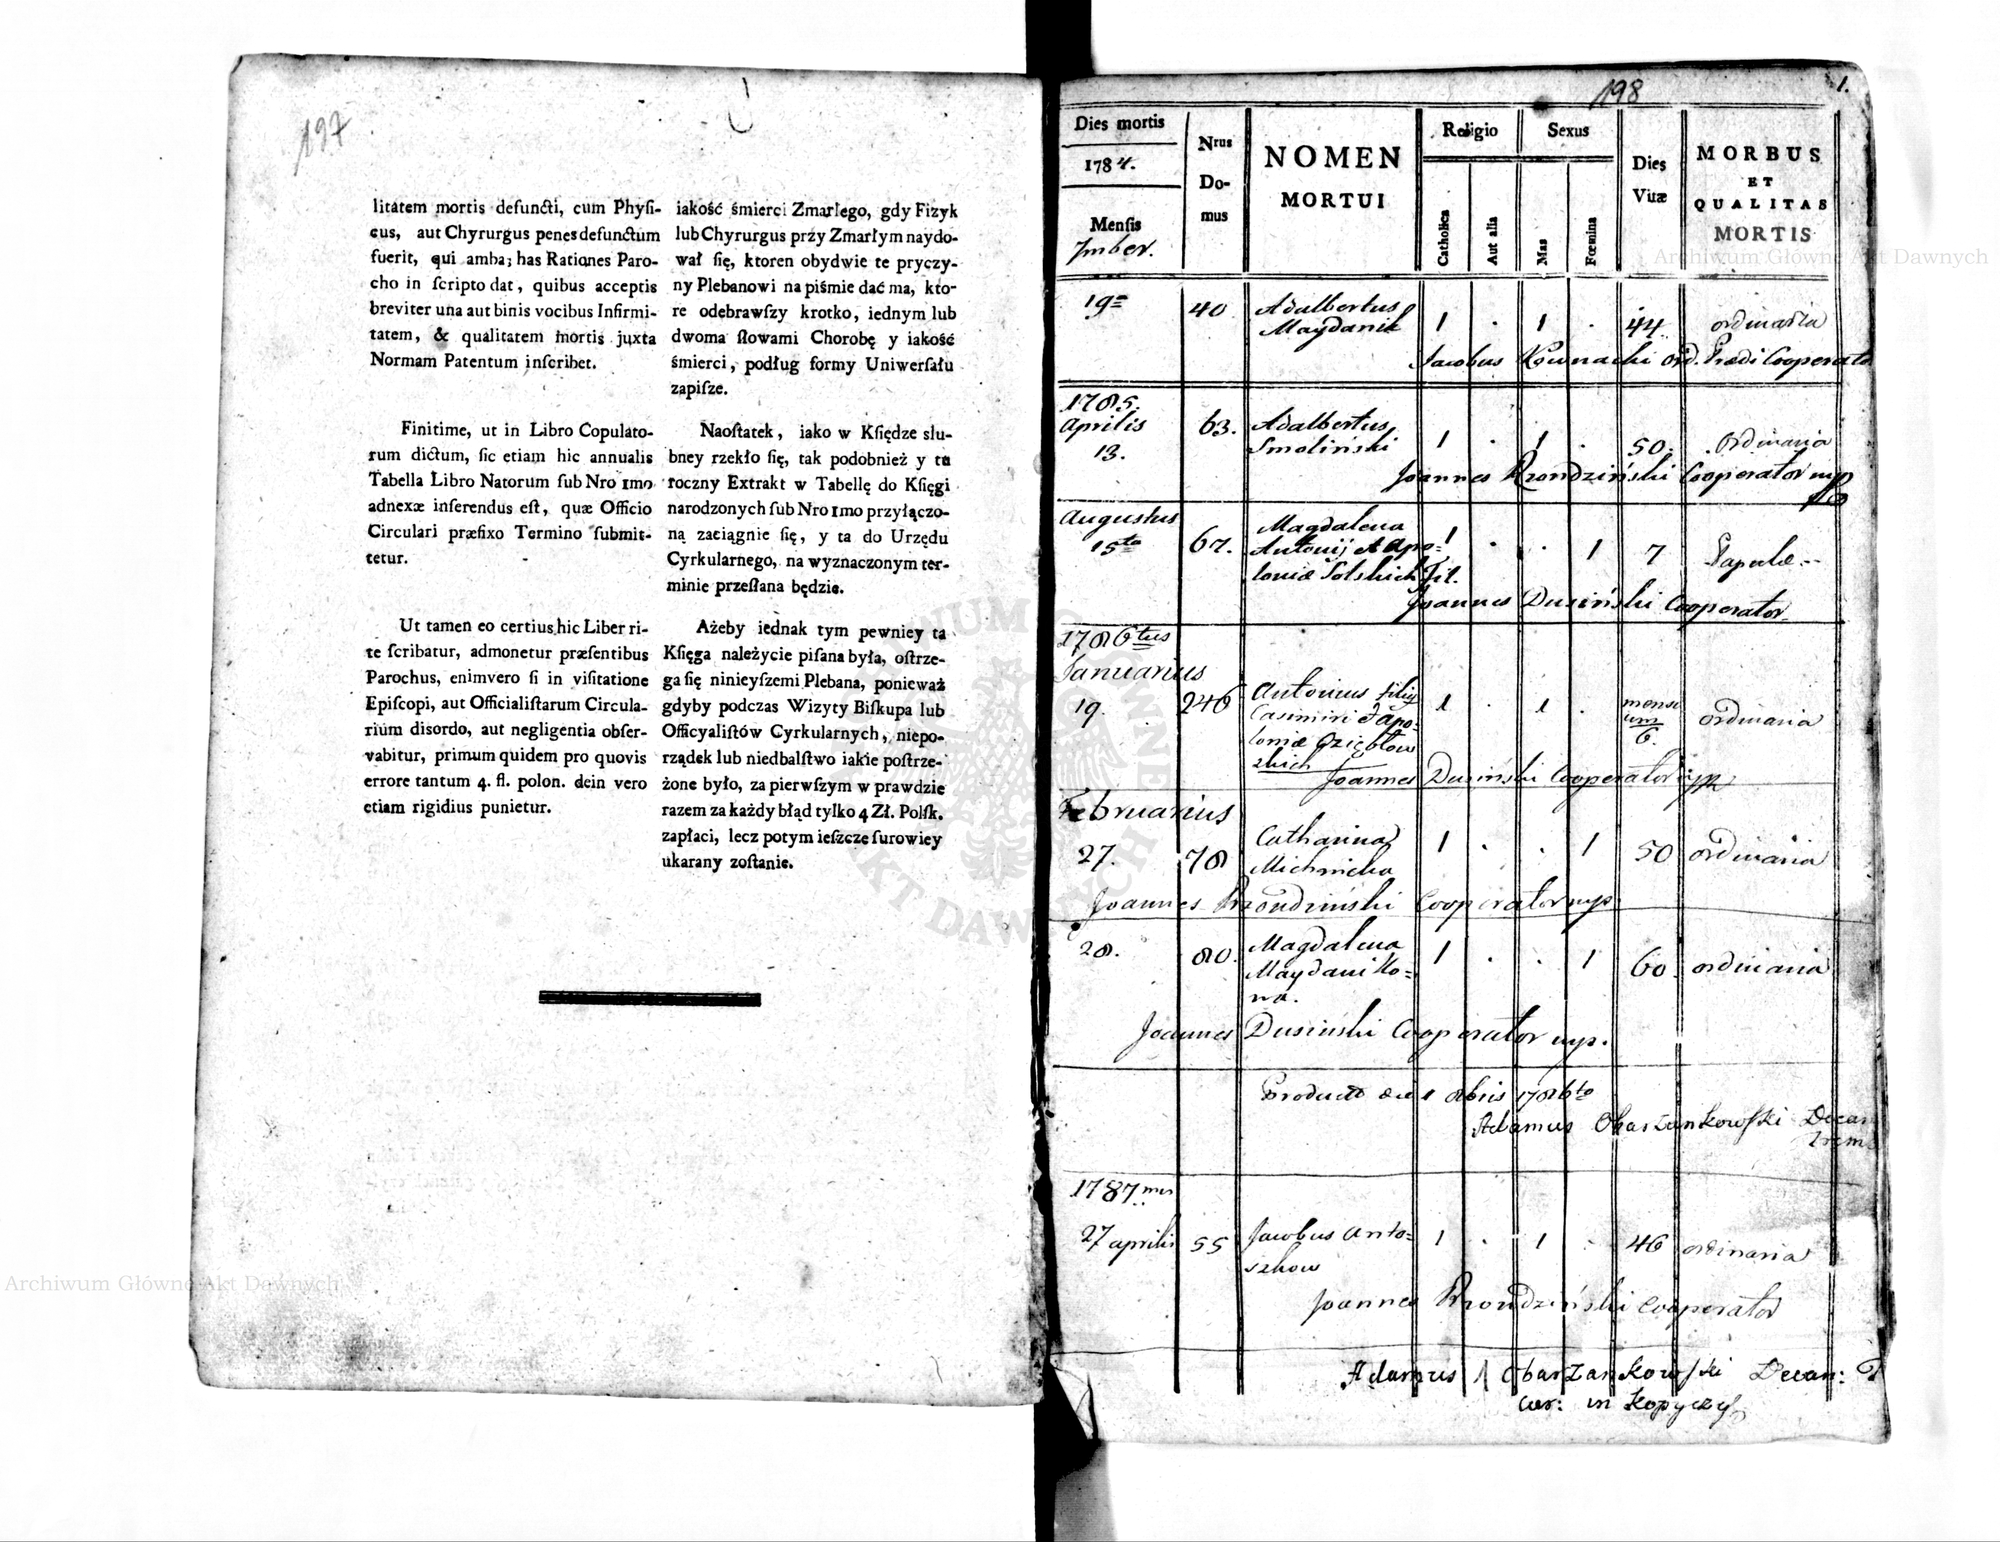 197
litatem mortis defuncti, cum Phyſi-
cus, aut Chyrurgus penes defunctum
fuerit, qui ambas has Rationes Paro-
cho in ſcripto dat, quibus acceptis
breviter una aut binis vocibus Infirmi-
tatem, & qualitatem mortis juxta
Normam Patentum inſcribet.
Finitime, ut in Libro Copulato-
rum dictum, ſic etiam hic annualis
Tabella Libro Natorum ſub Nro 1mo
adnexæ inſerendus eſt, quæ Officio
Circulari præfixo Termino ſubmit-
tetur.
Ut tamen eo certius hic Liber ri-
te ſcribatur, admonetur præſentibus
Parochus, enimvero ſi in viſitatione
Epiſcopi, aut Officialiſtarum Circula-
rium disordo, aut negligentia obſer-
vabitur, primum quidem pro quovis
errore tantum 4. fl. polon. dein vero
etiam rigidius punietur.
iakość śmierci Zmarłego, gdy Fizyk
lub Chyrurgus przy Zmarłym naydo-
wał ſię, ktoren obydwie te pryczy-
ny Plebanowi na piśmie dać ma, kto-
re odebrawſzy krotko, iednym lub
dwoma ſłowami Chorobę y iakość
śmierci, podług formy Uniwerſału
zapiſze.
Naoſtatek, iako w Kſiędze slu-
bney rzekło ſię, tak podobnież y tu
roczny Extrakt w Tabellę do Kſięgi
narodzonych ſub Nro 1mo przyłączo-
ną zaciągnie ſię, y ta do Urzędu
Cyrkularnego, na wyznaczonym ter-
minie przeſłana będzie.
Ażeby iednak tym pewniey ta
Kſięga należycie piſana była, oſtrze-
ga ſię ninieyſzemi Plebana, ponieważ
gdyby podczas Wizyty Biſkupa lub
Officyaliſtów Cyrkularnych, niepo-
rządek lub niedbalſtwo iakie poſtrze-
żone było, za pierwſzym w prawdzie
razem za każdy błąd tylko 4 Zł. Polſk.
zapłaci, lecz potym ieſzcze ſurowiey
ukarany zoſtanie.
198
1.
Dies mortis
1784.
Menſis
7mber.
Nrus
Do-
mus
NOMEN
MORTUI
Religio
Catholica
Aut alia
Sexus
Mas
Fœmina
Dies
Vitæ
MORBUS
ET
QUALITAS
MORTIS
19= 40 Adalbertus
Maydanik 1 . 1 . 44 ordinaria
Jacobus Kownacki Ord. Prædi Cooperato
1785.
Aprilis 63. Adalbertus
13. Smoliński 1 . 1 . 50. Ordinaria
Joannes Rzondziński Cooperator mp
Augustus Magdalena
15ta 67. Antonij et Apo= 1 . . 1 7 Papulæ
loniæ Solskich Fil.
Joannes Dusiński Cooperator
1786tus
Januarius
19. 246 Antonius filij 1 . 1 . mensi
Casimiri et Apo- um ordinaria
loniæ Dziębłow 6.
skich
Joannes Dusiński Cooperator mp
Februarius
27. 78 Catharina 1 . . 1 50 ordinaria
Michnicka
Joannes Rzondziński Cooperator mp
28. 80. Magdalena 1 . . 1 60 ordinaria
Maydaniko=
wa.
Joannes Dusiński Cooperator mp.
Product die 1 8bris 1786to
Adamus Obarzankowſki Decan
Trem
1787mus
27 aprilis 55 Jacobus Anto= 1 . 1 . 46 ordinaria
szkow
Joannes Rzondziński Cooperator
Adamus Obarzankowſki Decan: T
Cur: in Kopyczy
Archiwum Główne Akt Dawnych
Archiwum Główne Akt Dawnych
ARCHIWUM GŁÓWNE AKT DAWNYCH